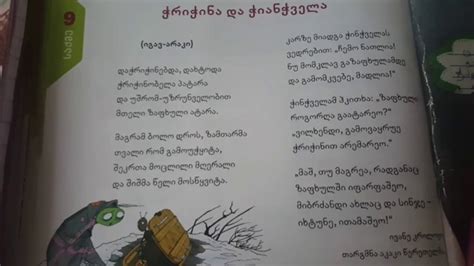 9
ჭრიჭინა და ჭიანჭველა
(იგავ-არაკი)
დაჭრიჭინებდა, დახტოდა
ჭრიჭინობელა პატარა
და უშრომ-უზრუნველობით
მთელი ზაფხული ატარა.
მაგრამ ბოლო დროს, ზამთარმა
თვალი რომ გამოუჭყიტა,
შეკრთა მოცლილი მღერალი
და შიშმა წელი მოსწყვიტა.
კარზე მიადგა ჭინჭველას
ვედრებით: „ჩემო ნათლია!
ნუ მომკლავ გაზაფხულამდე
და გამომკვებე, მადლია!“
ჭინჭველამ ჰკითხა: „ზაფხული
როგორღა გაატარეო?“
„ვილხენდი, გამოვაყრუე
ჭრიჭინით არემარეო.“
„მაშ, თუ მაგრეა, რადგანაც
ზაფხულში იფარფაშეო,
მიბრძანდი ახლაც და სინჯე -
იხტუნე, ითამაშეო!“
ივანე კრილოვი
თარგმნა აკაკი წერეთელმა